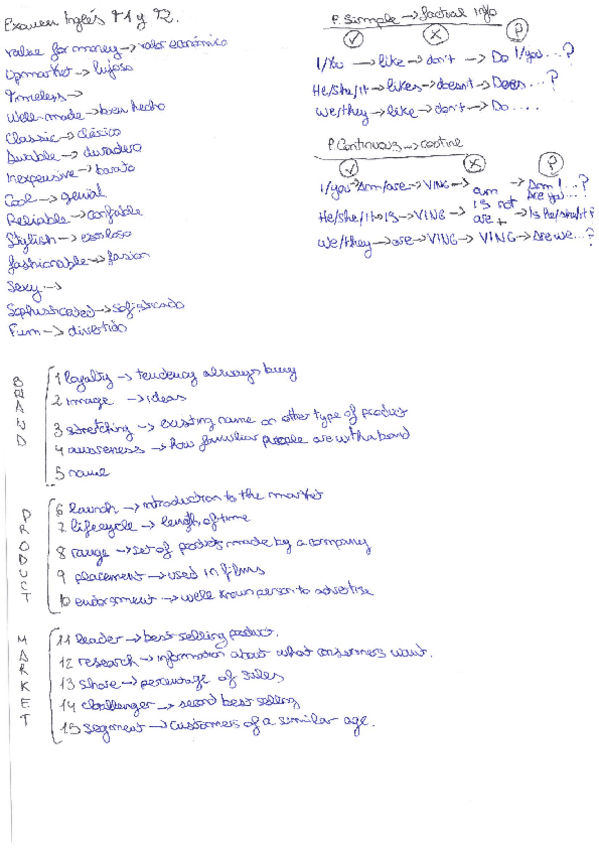 Examen Inglés T1 y T2.
value for money → valor económico
Upmarket → lujoso
Timeless →
Well-made → bien hecho
Classic → clásico
Durable → duradero
Inexpensive → barato
Cool → genial
Reliable → confiable
Stylish →
fashionable →
Sexy →
Sophisticated → sofisticado
Funn → divertido
P. Simple → factual info
✓ X ?
I/You → like → don't → Do I/you...?
He/She/It → likes → doesn't → Does...?
We/they → like → don't → Do....
P. Continuous →
✓ X ?
I/you → Am/are → VING → am → Am I...?
Are you...?
He/She/It → IS → VING → is not → Is He/she/it?
We/they → are → VING → are + VING → Are we...?
BRAND
1 loyalty → tendency always buy
2 image → ideas
3 stretching → existing name on other type of product
4 awareness → how familiar people are with a band
5 name
PRODUCT
6 launch → introduction to the market
7 lifecycle → length of time
8 range → set of products made by a company
9 placement → used in films
10 endorsment → well known person to advertise
MARKET
11 leader → best selling product.
12 research → information about what consumers want.
13 share → percentage of sales
14 challenger → second best selling
15 segment → customers of a similar age.